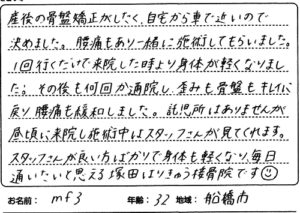 産後の骨盤矯正がしたく、自宅から車で近いので
決めました。腰痛もあり一緒に施術してもらいました。
1回行くだけで来院した時より身体が軽くなりまし
た。その後も何回か通院し、歪みも骨盤もキレイに
戻り腰痛も緩和しました。託児所はありませんが
昼頃に来院し施術中はスタッフさんが見てくれます。
スタッフさんが良い方ばかりで身体も軽くなり、毎日
通いたいと思える塚田はりきゅう接骨院です☺
お名前: mf3 年齢: 32 地域: 船橋市